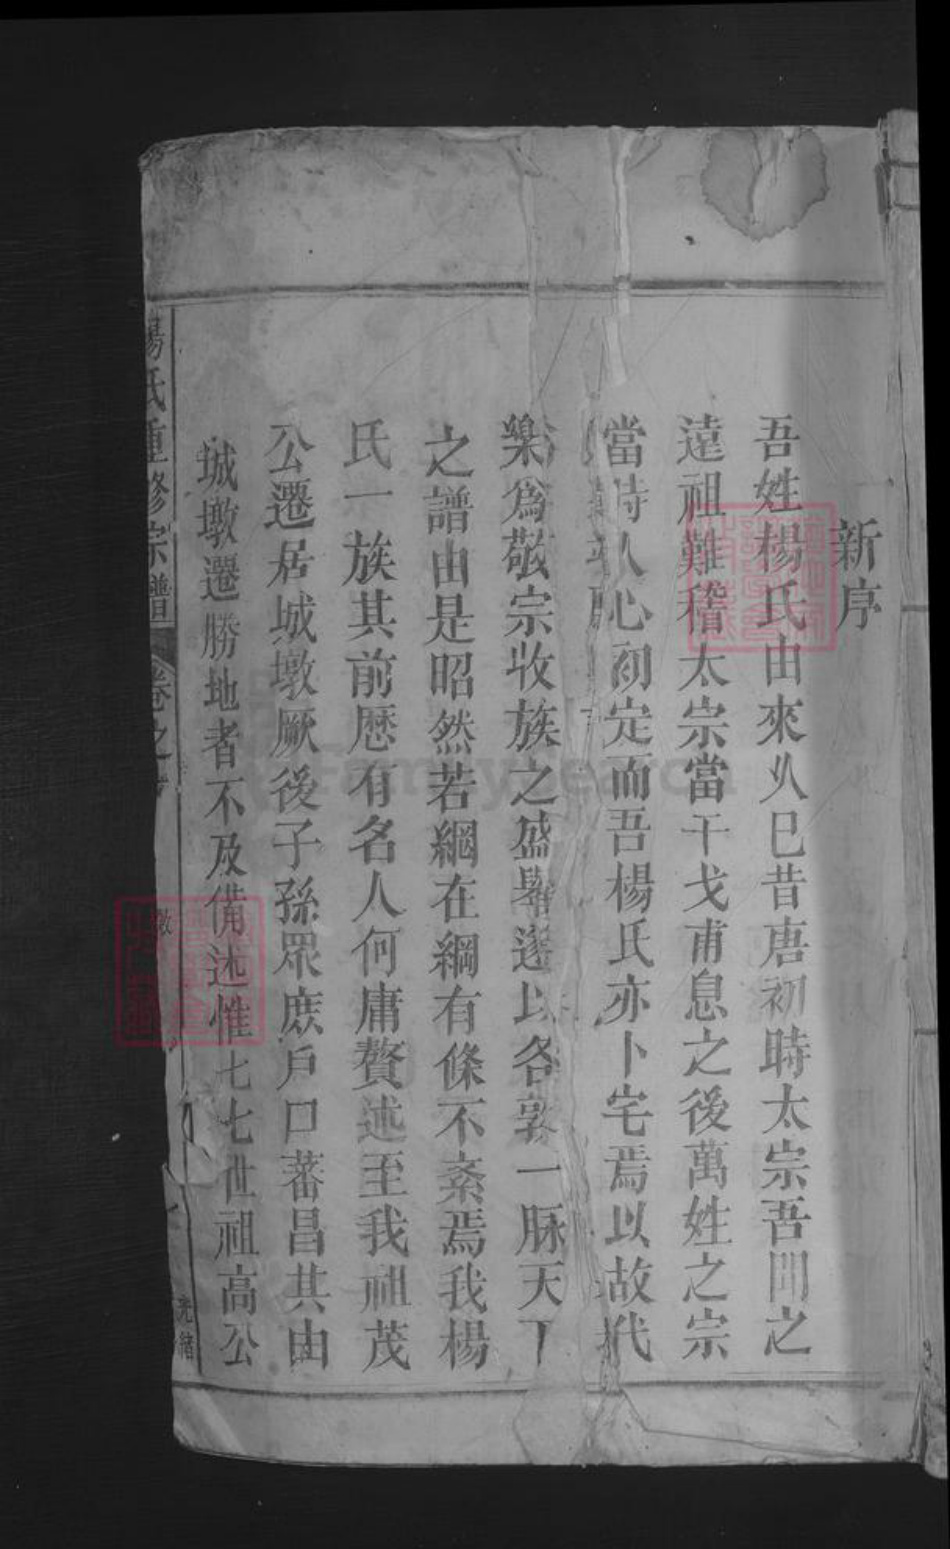 新序
吾姓楊氏由來乆巳昔唐初時太宗吾聞之
遠祖難稽太宗當干戈甫息之後萬姓之宗
當時人心初定而吾楊氏亦卜宅焉以故代
樂爲敬宗收族之盛舉遂以各敦一脉天下
之譜由是昭然若綱在綱有條不紊焉我楊
氏一族其前歷有名人何庸贅述至我祖茂
公遷居城墩厥後子孫眾庶戶口蕃昌其由
城墩遷勝地者不及備述惟七七世祖高公
楊氏重修宗譜 卷之